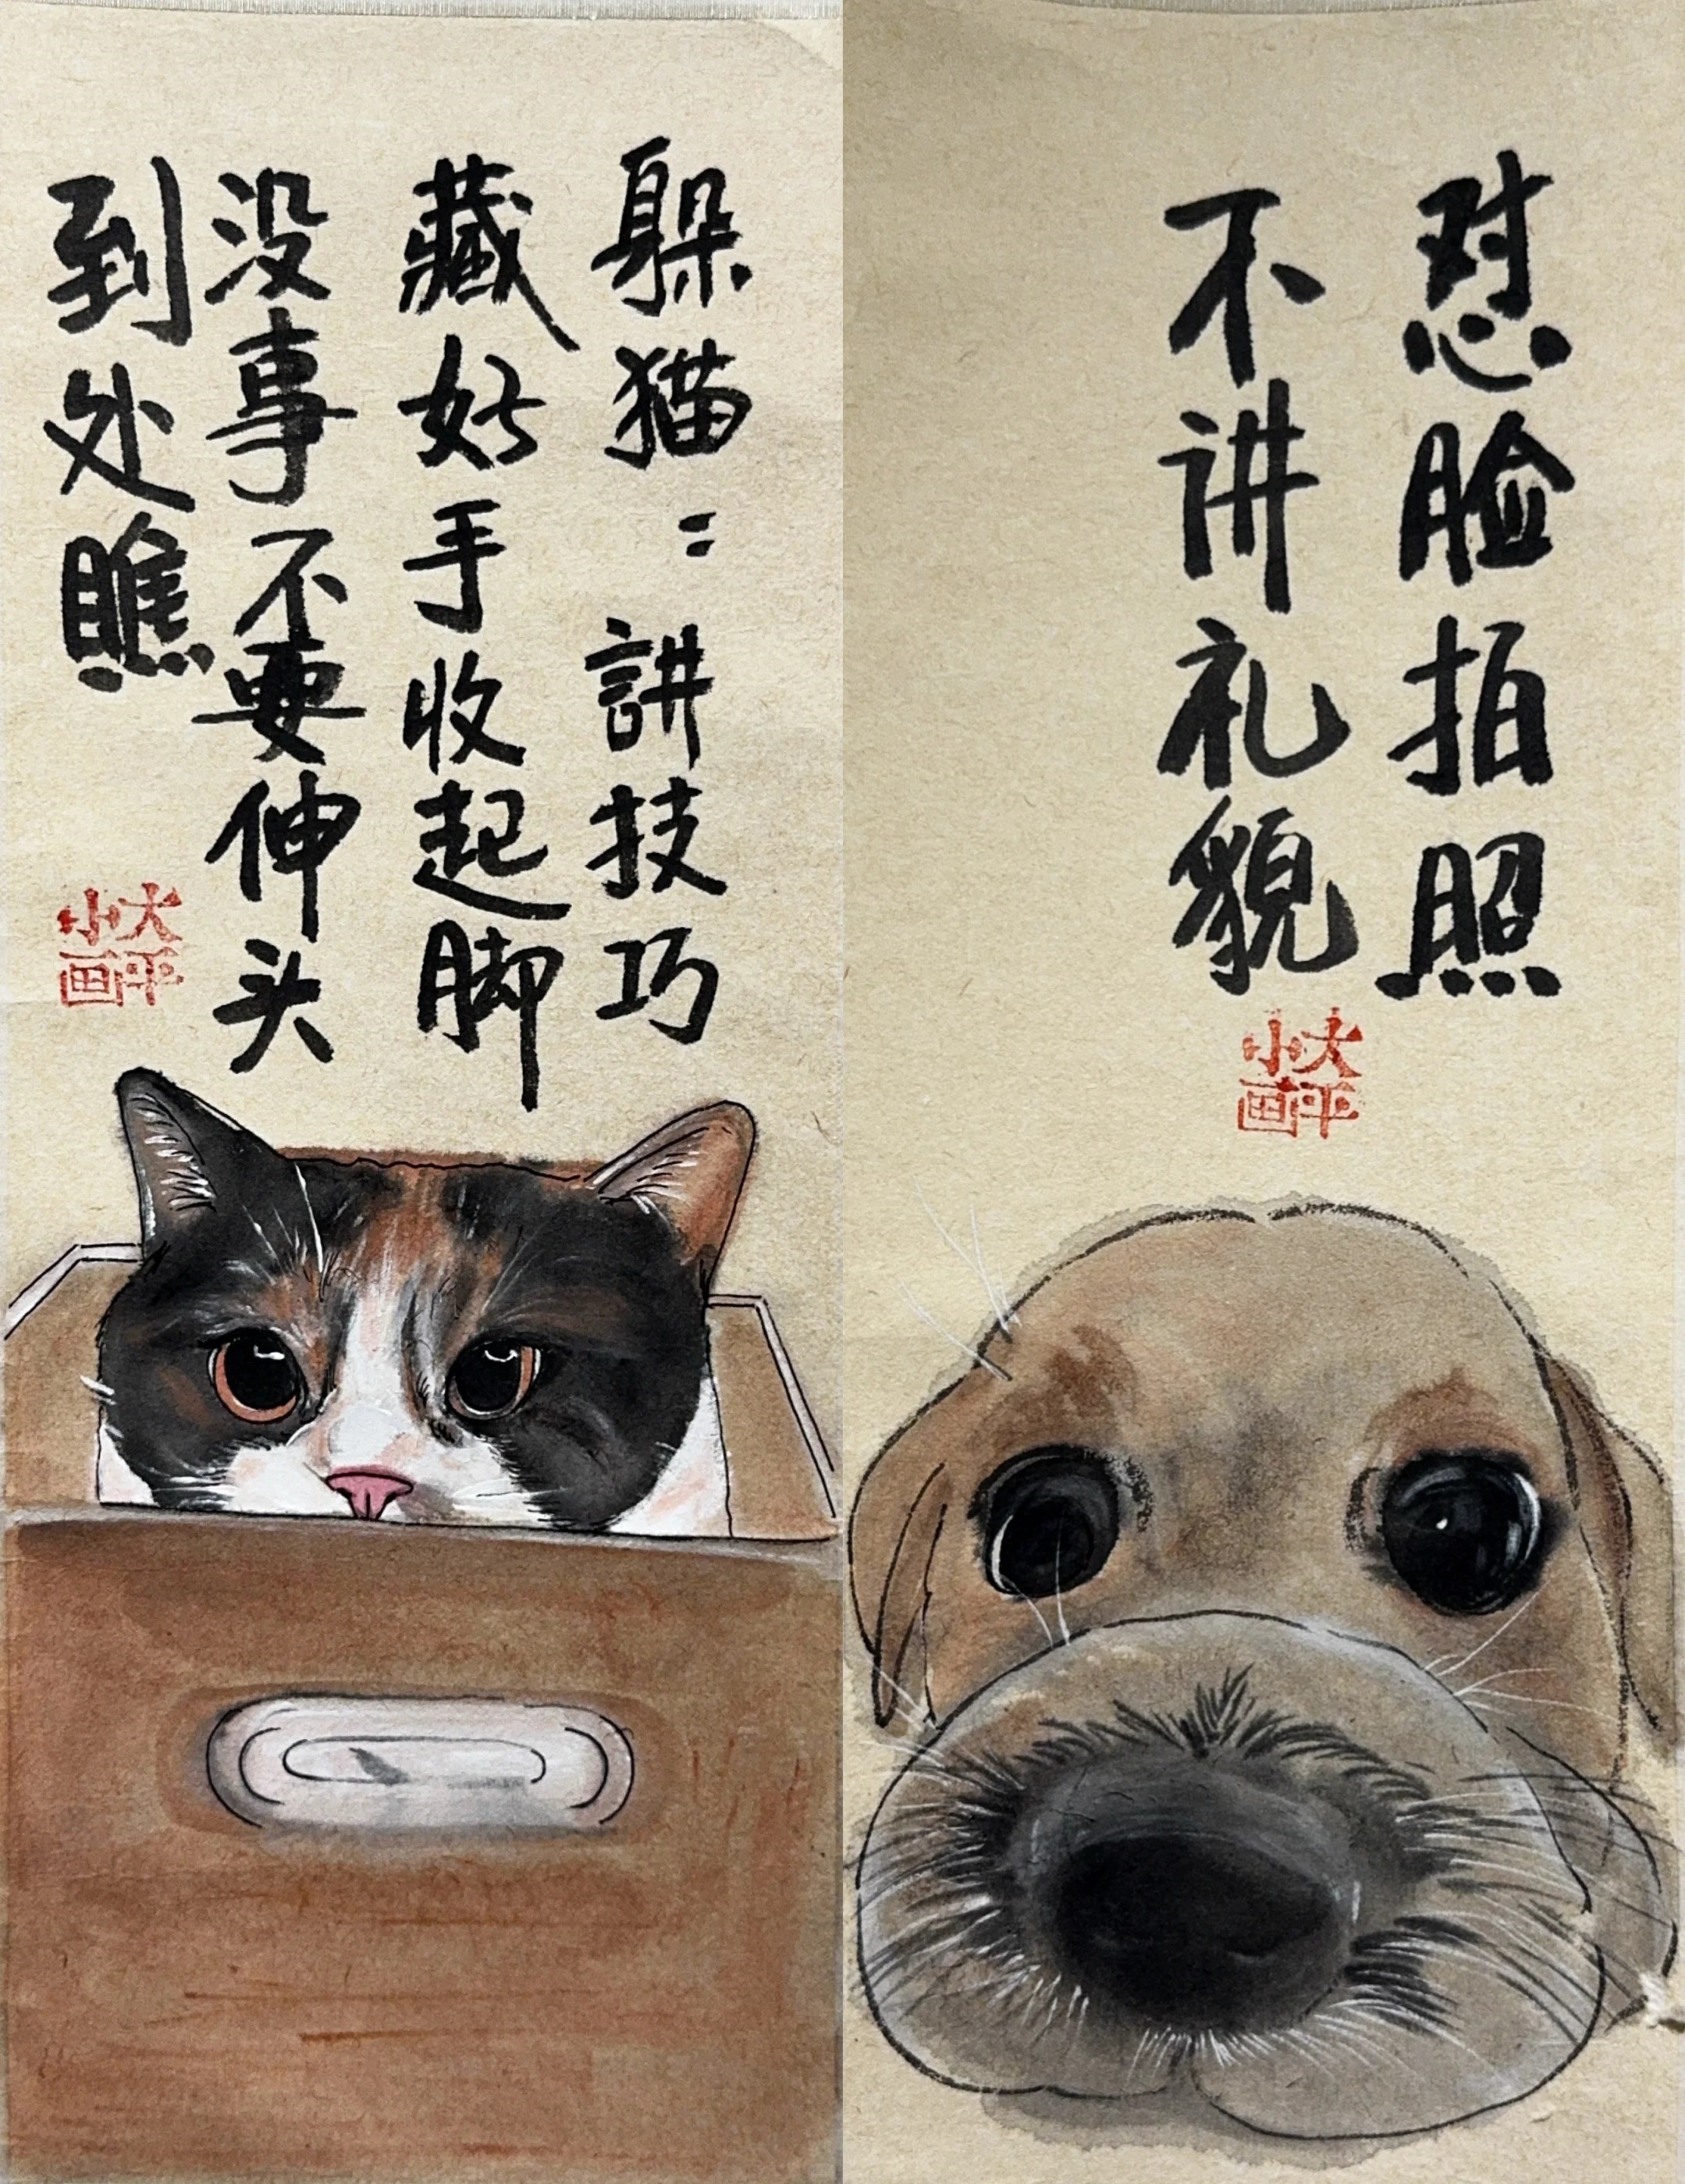 躲猫：講技巧
藏好手收起脚
没事不要伸头
到处瞧
大平
小画
怼脸拍照
不讲礼貌
大平
小画